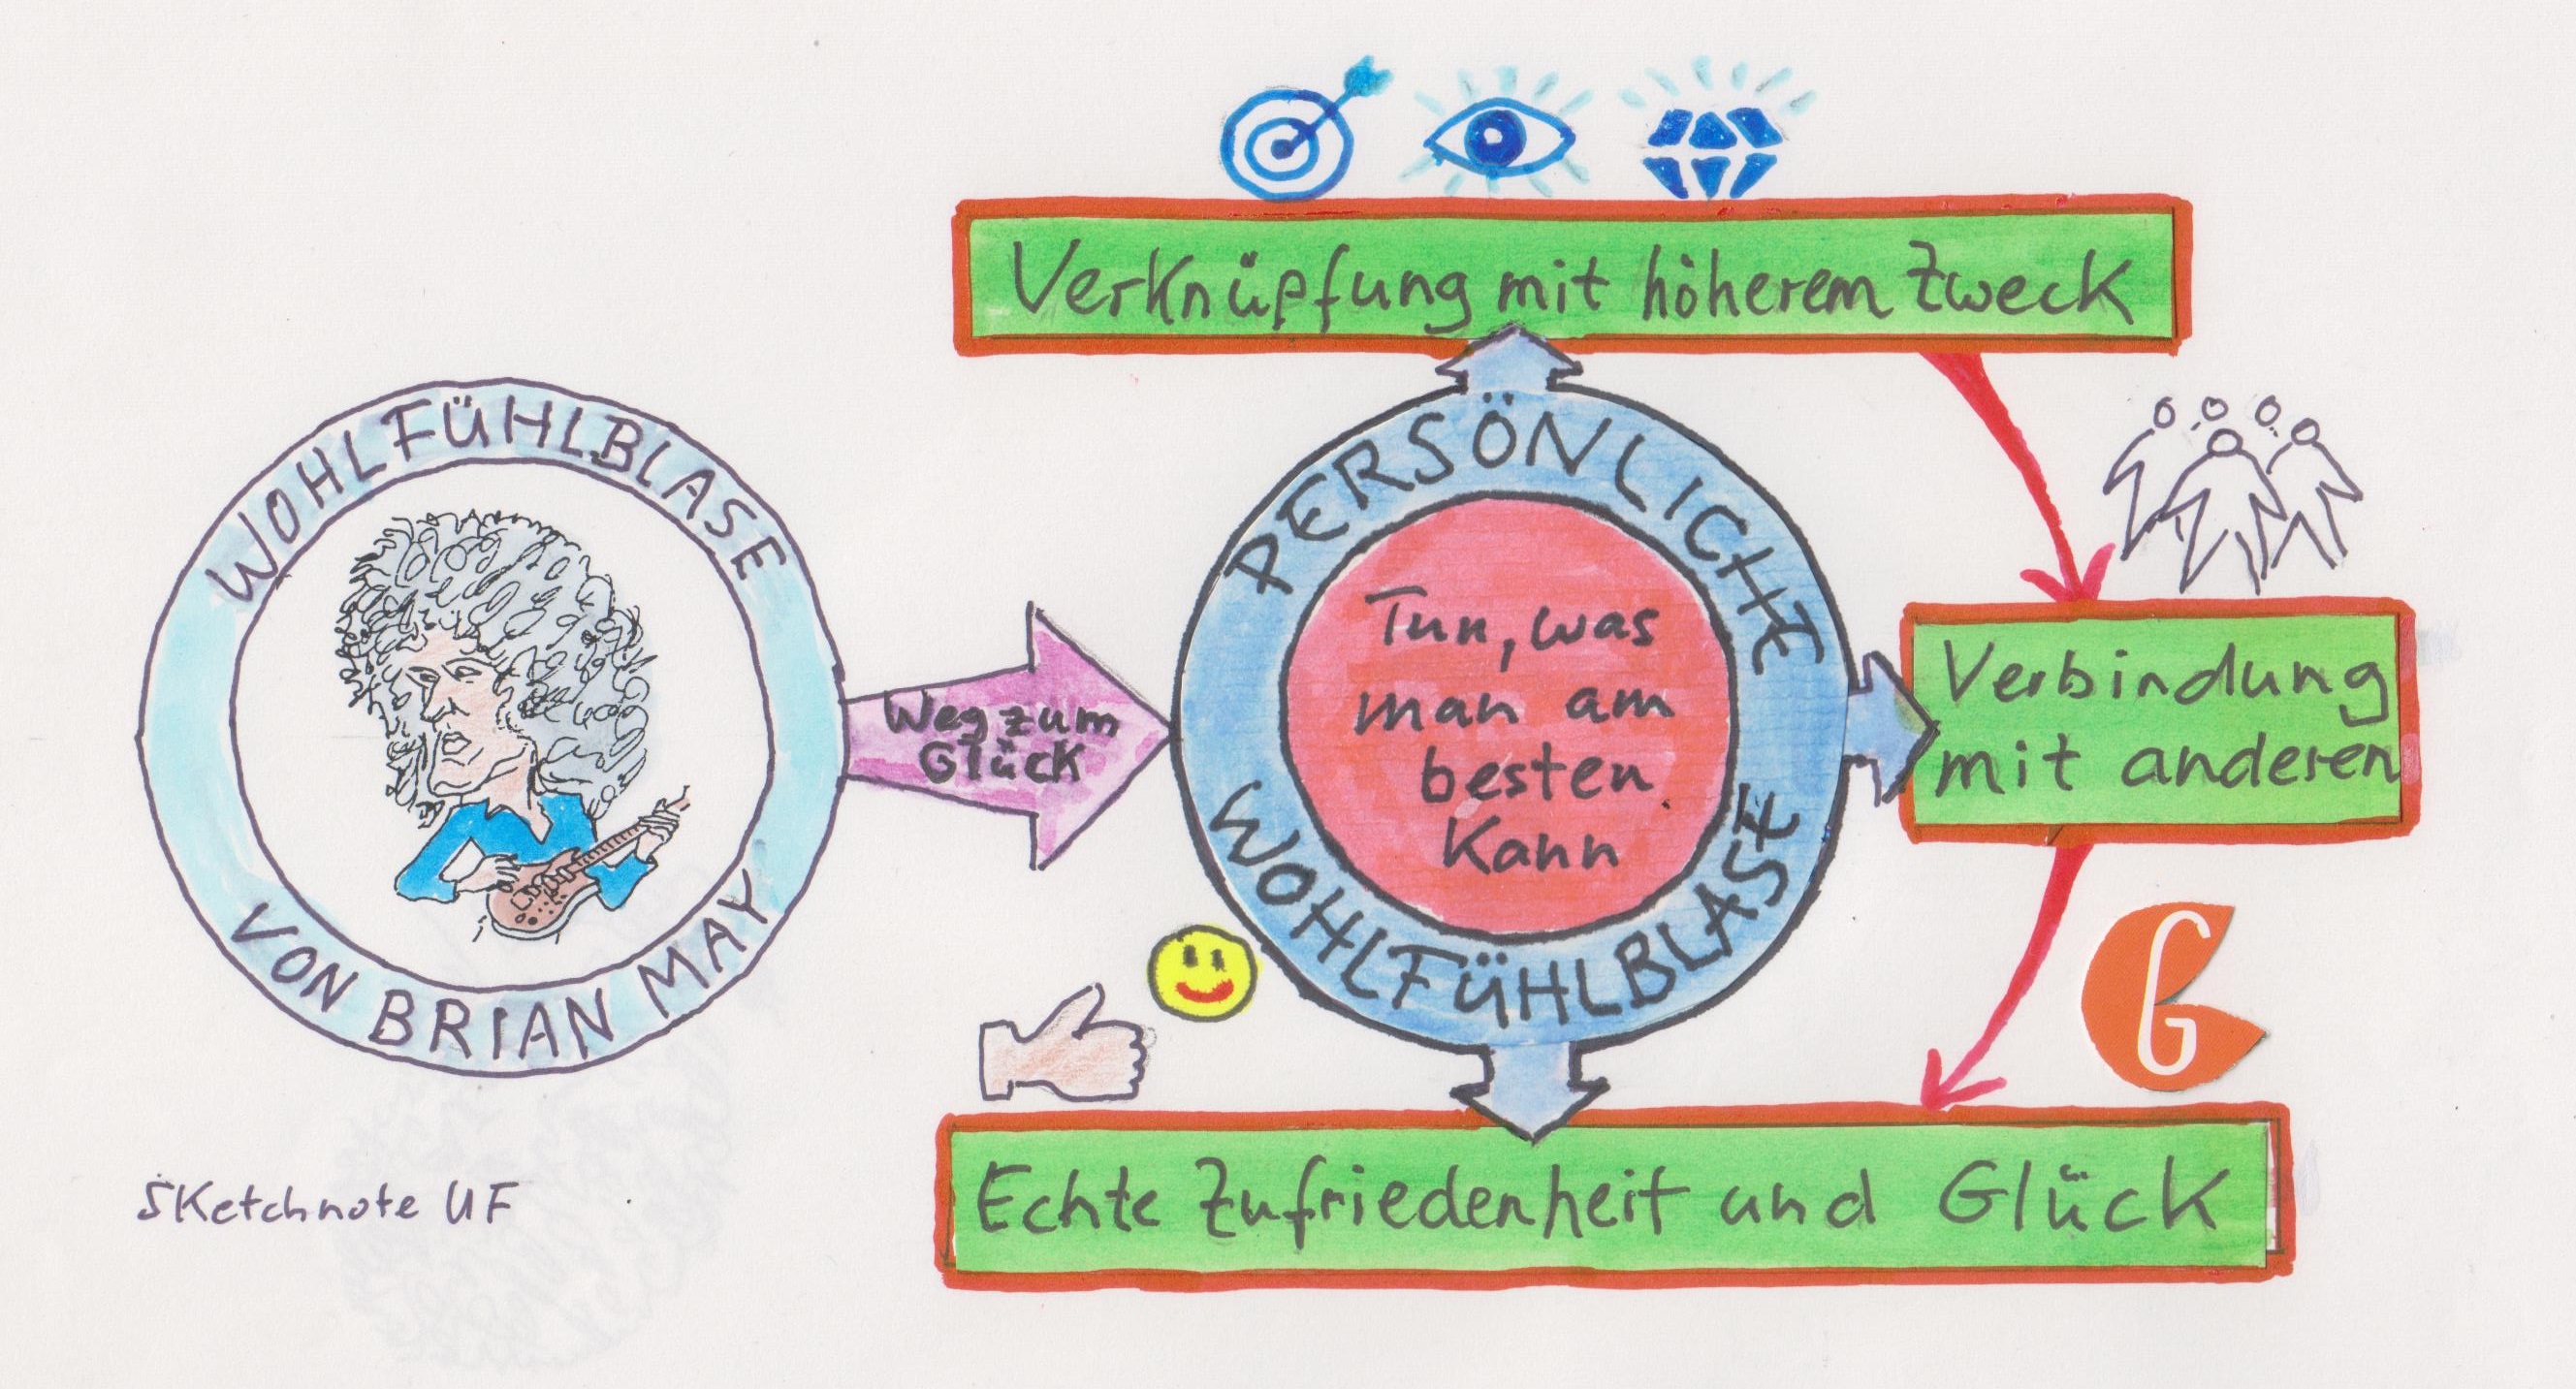 WOHLFÜHLBLASE
VON BRIAN MAY
Weg zum
Glück
PERSÖNLICHE
WOHLFÜHLBLASE
Tun, was
man am
besten
Kann
Verknüpfung mit höherem Zweck
Verbindung
mit anderen
G
Echte Zufriedenheit und Glück
Sketchnote UF